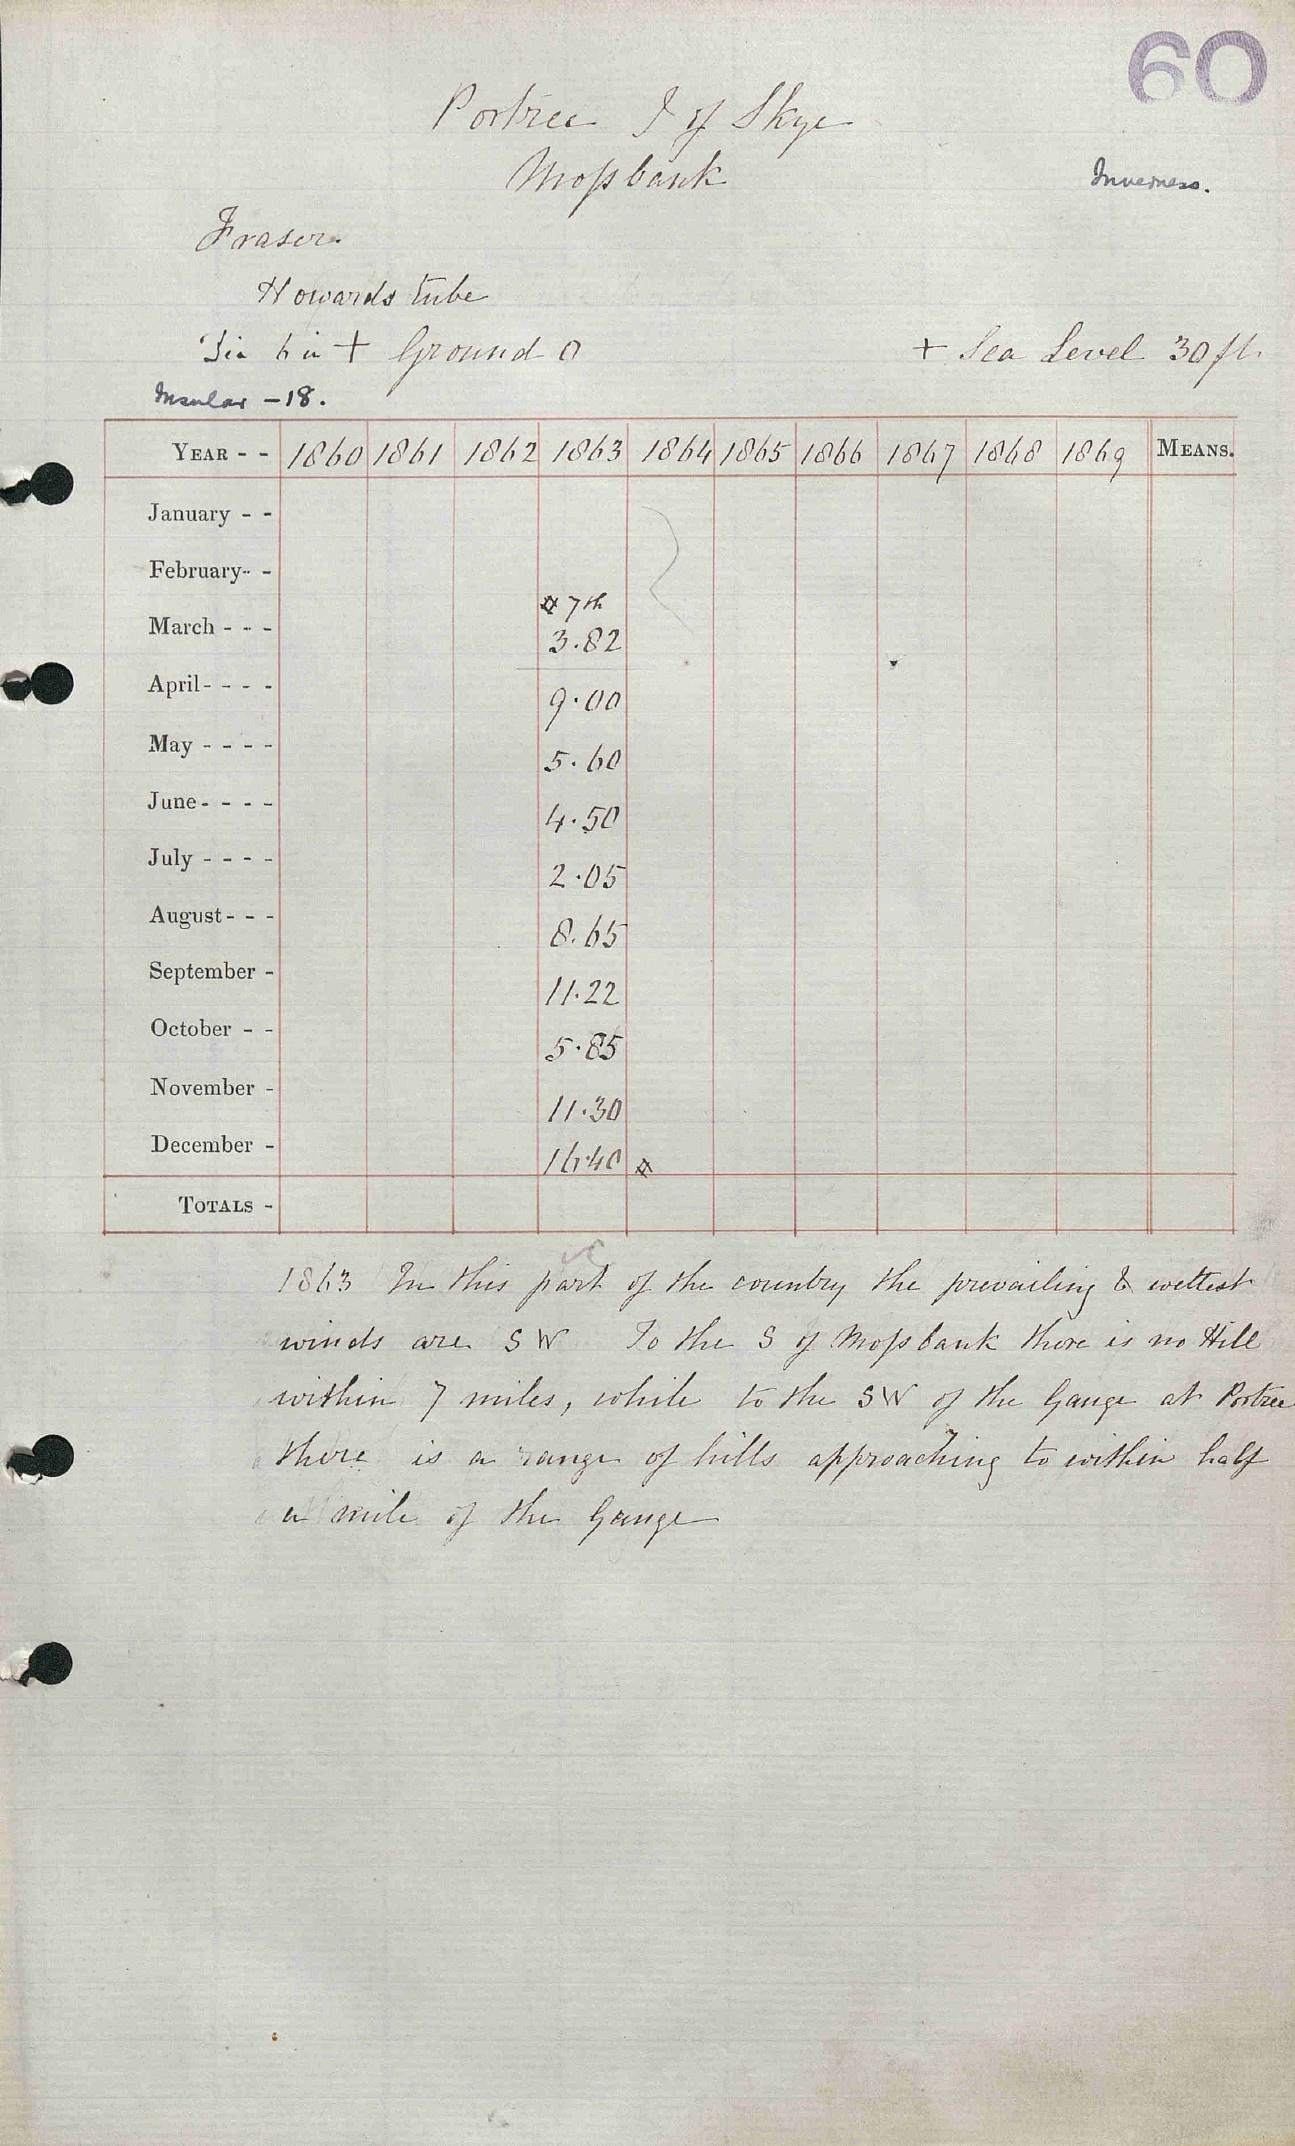 60
Portree I of Skye
Mossbank
Inverness.
Fraser
Howards tube
Dia 6 in + Ground 0 + Sea Level 30 ft.
Insular - 18.
YEAR - - 1860 1861 1862 1863 1864 1865 1866 1867 1868 1869 MEANS.
January - -
February - -
7th
March - - - 3.82
April - - - - 9.00
May - - - - 5.60
June - - - - 4.50
July - - - - 2.05
August - - - 8.65
September - 11.22
October - - 5.85
November - 11.30
December - 16.40
TOTALS -
1863 In this part of the country the prevailing & wettest
winds are S W To the S of Mossbank there is no Hill
within 7 miles, while to the SW of the Gauge at Portree
there is a range of hills approaching to within half
a mile of the Gauge